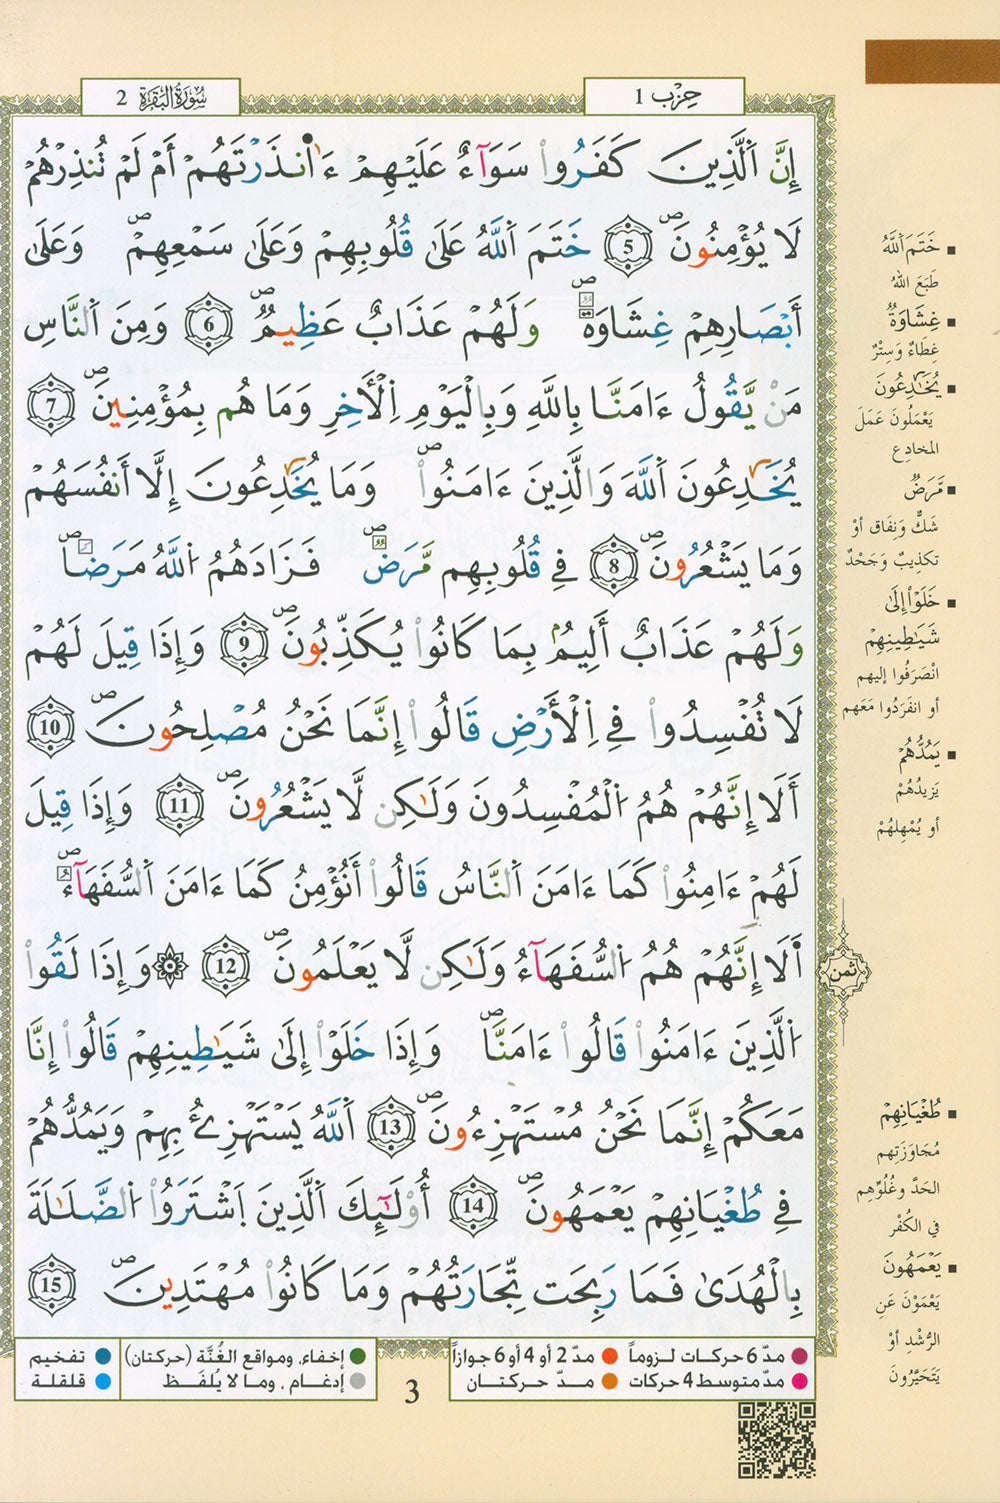 حِزْب 1
سُورَةُ البَقَرَة 2
إِنَّ اَ۬لَّذِينَ كَفَرُواْ سَوَآءٌ عَلَيْهِمْ ءَا۬نذَرْتَهُمْ أَمْ لَمْ تُنذِرْهُمْ
لَا يُؤْمِنُونَۖ 5 خَتَمَ اَ۬للَّهُ عَلَىٰ قُلُوبِهِمْ وَعَلَىٰ سَمْعِهِمْۖ وَعَلَىٰ
أَبْصَٰرِهِمْ غِشَٰوَةٞۖ وَلَهُمْ عَذَابٌ عَظِيمٞۖ 6 وَمِنَ اَ۬لنَّاسِ
مَنْ يَّقُولُ ءَامَنَّا بِاللَّهِ وَبِالْيَوْمِ اِ۬لْأٓخِرِ وَمَا هُم بِمُؤْمِنِينَۖ 7
يُخَٰدِعُونَ اَ۬للَّهَ وَالَّذِينَ ءَامَنُواْۖ وَمَا يُخَٰدِعُونَ إِلَّا أَنفُسَهُمْ
وَمَا يَشْعُرُونَۖ 8 فِي قُلُوبِهِم مَّرَضٞۖ فَزَادَهُمُ اُ۬للَّهُ مَرَضاٗۖ
وَلَهُمْ عَذَابٌ أَلِيمُۢ بِمَا كَانُواْ يُكَذِّبُونَۖ 9 وَإِذَا قِيلَ لَهُمْ
لَا تُفْسِدُواْ فِي اِ۬لْأَرْضِ قَالُواْ إِنَّمَا نَحْنُ مُصْلِحُونَۖ 10
أَلَا إِنَّهُمْ هُمُ اُ۬لْمُفْسِدُونَ وَلَٰكِن لَّا يَشْعُرُونَۖ 11 وَإِذَا قِيلَ
لَهُمْ ءَامِنُواْ كَمَا ءَامَنَ اَ۬لنَّاسُ قَالُواْ أَنُؤْمِنُ كَمَا ءَامَنَ اَ۬لسُّفَهَآءُۖ
أَلَا إِنَّهُمْ هُمُ اُ۬لسُّفَهَآءُ وَلَٰكِن لَّا يَعْلَمُونَۖ 12 ۞ وَإِذَا لَقُواْ
اُ۬لَّذِينَ ءَامَنُواْ قَالُواْ ءَامَنَّاۖ وَإِذَا خَلَوْاْ إِلَىٰ شَيَٰطِينِهِمْ قَالُواْ إِنَّا
مَعَكُمْ إِنَّمَا نَحْنُ مُسْتَهْزِءُونَۖ 13 اَ۬للَّهُ يَسْتَهْزِئُ بِهِمْ وَيَمُدُّهُمْ
فِي طُغْيَٰنِهِمْ يَعْمَهُونَۖ 14 أُوْلَٰٓئِكَ اَ۬لَّذِينَ اَ۪شْتَرَوُاْ اُ۬لضَّلَٰلَةَ
بِالْهُدَىٰ فَمَا رَبِحَت تِّجَٰرَتُهُمْ وَمَا كَانُواْ مُهْتَدِينَۖ 15
خَتَمَ اَ۬للَّهُ
طَبَعَ اللهُ
غِشَٰوَةٌ
غِطَاءٌ وَسِتْرٌ
يُخَٰدِعُونَ
يَعْمَلُونَ عَمَلَ
المخادِع
مَّرَضٌ
شَكٌّ وَنِفَاق أَوْ
تكذِيبٌ وَجَحْدٌ
خَلَوْاْ إِلَىٰ
شَيَٰطِينِهِمْ
انْصَرَفُوا إليهم
أو انفَرَدُوا مَعَهم
يَمُدُّهُمْ
يَزِيدُهُمْ
أو يُمْهِلهُمْ
ثمن
طُغْيَٰنِهِمْ
مُجَاوَزَتِهم
الحَدَّ وغُلُوِّهِم
في الكُفْر
يَعْمَهُونَ
يَعْمَوْنَ عَنِ
الرُّشْدِ أَوْ
يَتَحَيَّرُونَ
مدّ 6 حركات لزوماً
مدّ 2 أو 4 أو 6 جوازاً
إخفاء، ومواقع الغُنَّة (حركتان)
تفخيم
مدّ متوسط 4 حركات
مدّ حركتان
إدغام، وما لا يُلفَظ
قلقلة
3